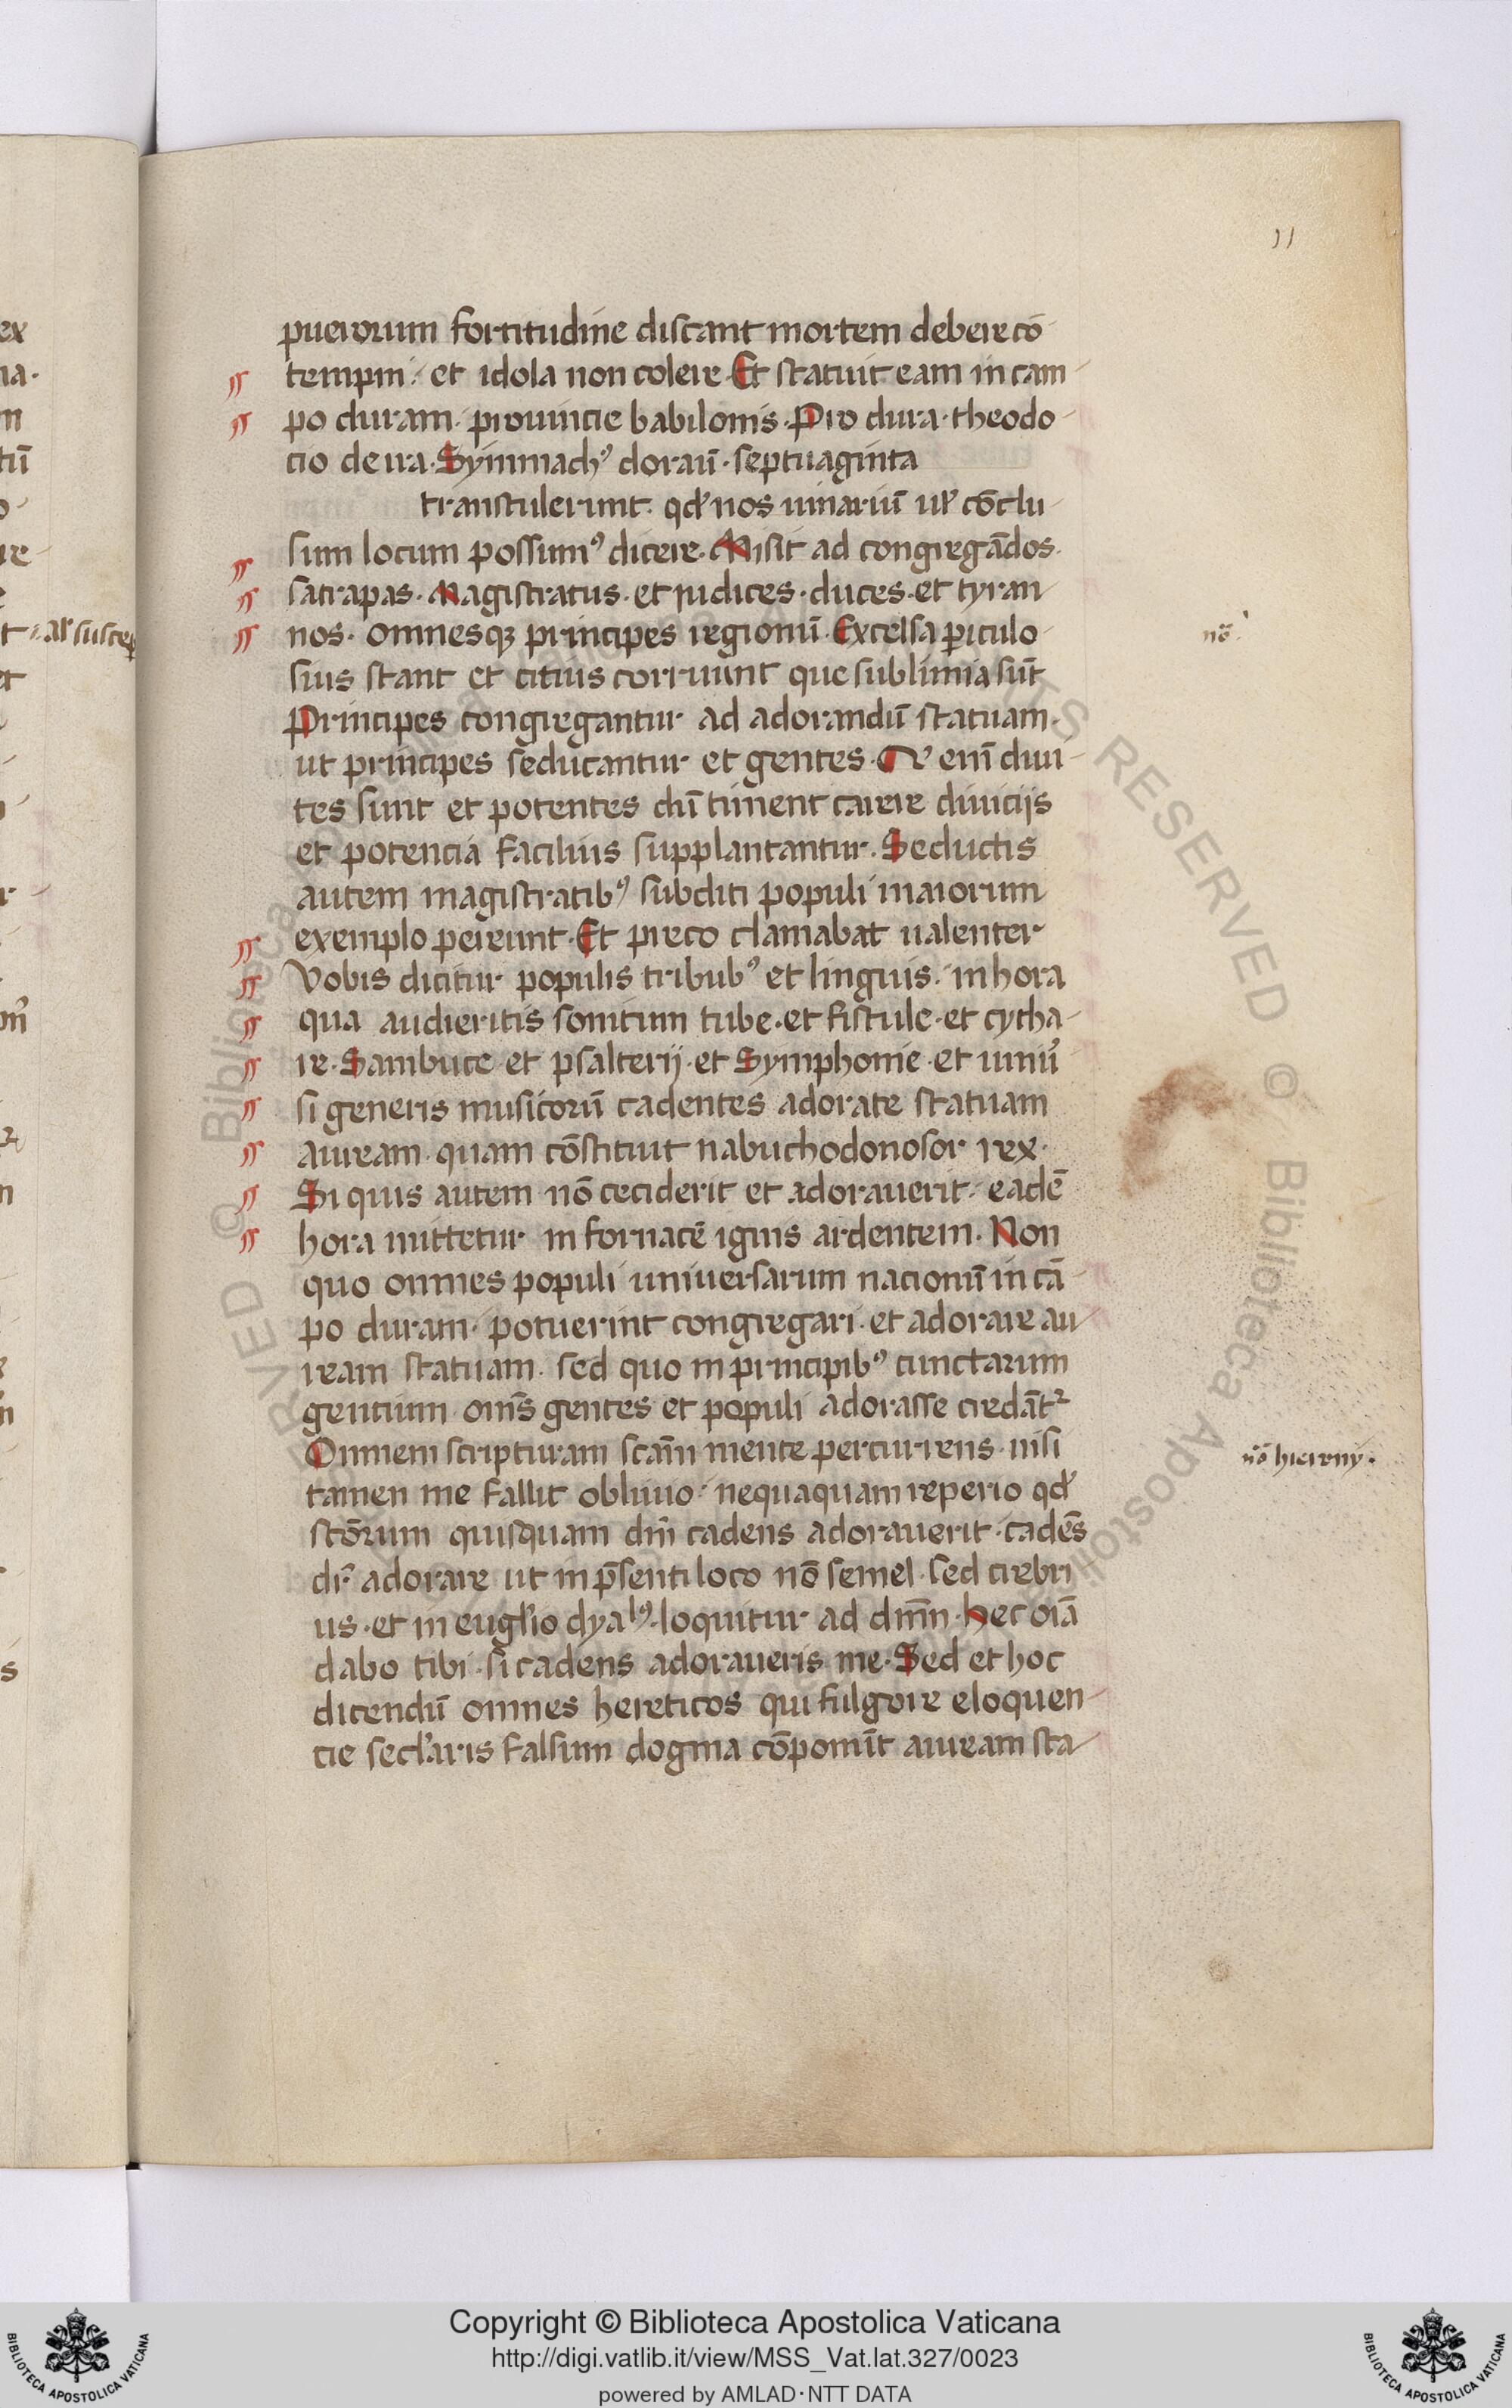 11
puerorum fortitudine discant mortem debere cō
tempni· et idola non colere· Et statuit eam in cam
po duram· prouincie babilonis· Pro dura· theodo
cio deira· Symmachꝰ doraū· septuaginta
transtulerunt· qđ nos uinariū uł cōclu
sum locum possumꝰ dicere· Misit ad congregādos·
satrapas· Magistratus· et iudices· duces· et tyran
nos· omnesqꝫ principes regionū· Excelsa ꝑiculo
nō·
sius stant et citius corruunt que sublimia sūt
Principes congregantur ad adorandū statuam·
ut principes seducantur et gentes· enī diui
tes sunt et potentes dū timent carere diuicijs
et potencia facilius supplantantur· Seductis
autem magistratibꝰ subditi populi maiorum
exemplo pereunt· Et preco clamabat ualenter
Vobis dicitur populis tribubꝰ et linguis· in hora
qua audieritis sonitum tube· et fistule· et cytha
re· Sambuce et psalterij· et Symphonie· et uniū
si generis musicorū cadentes adorate statuam
auream· quam cōstituit nabuchodonosor rex·
Si quis autem nō ceciderit et adorauerit· eadē
hora mittetur in fornacē ignis ardentem· Non
quo omnes populi uniuersarum nacionū in cā
po duram· potuerint congregari· et adorare au
ream statuam· sed quo in principibꝰ cunctarum
gentium om̄s gentes et populi adorasse credātᷣ
Omnem scripturam scām mente percurrens· nisi
nō hierony·
tamen me fallit obliuio· nequaquam reperio qđ
scōrum quisquam dm̄ cadens adorauerit· cadēs
dr̄ adorare ut in p̄senti loco nō semel· sed crebri
us· et in euglio dyalꝰ· loquitur ad dm̄n· hec oīa
dabo tibi· si cadens adoraueris me· Sed et hoc
dicendū omnes hereticos qui fulgore eloquen
cie secłaris falsum dogma cōponūt auream sta
ał suscep
Copyright © Biblioteca Apostolica Vaticana
http://digi.vatlib.it/view/MSS_Vat.lat.327/0023
powered by AMLAD·NTT DATA